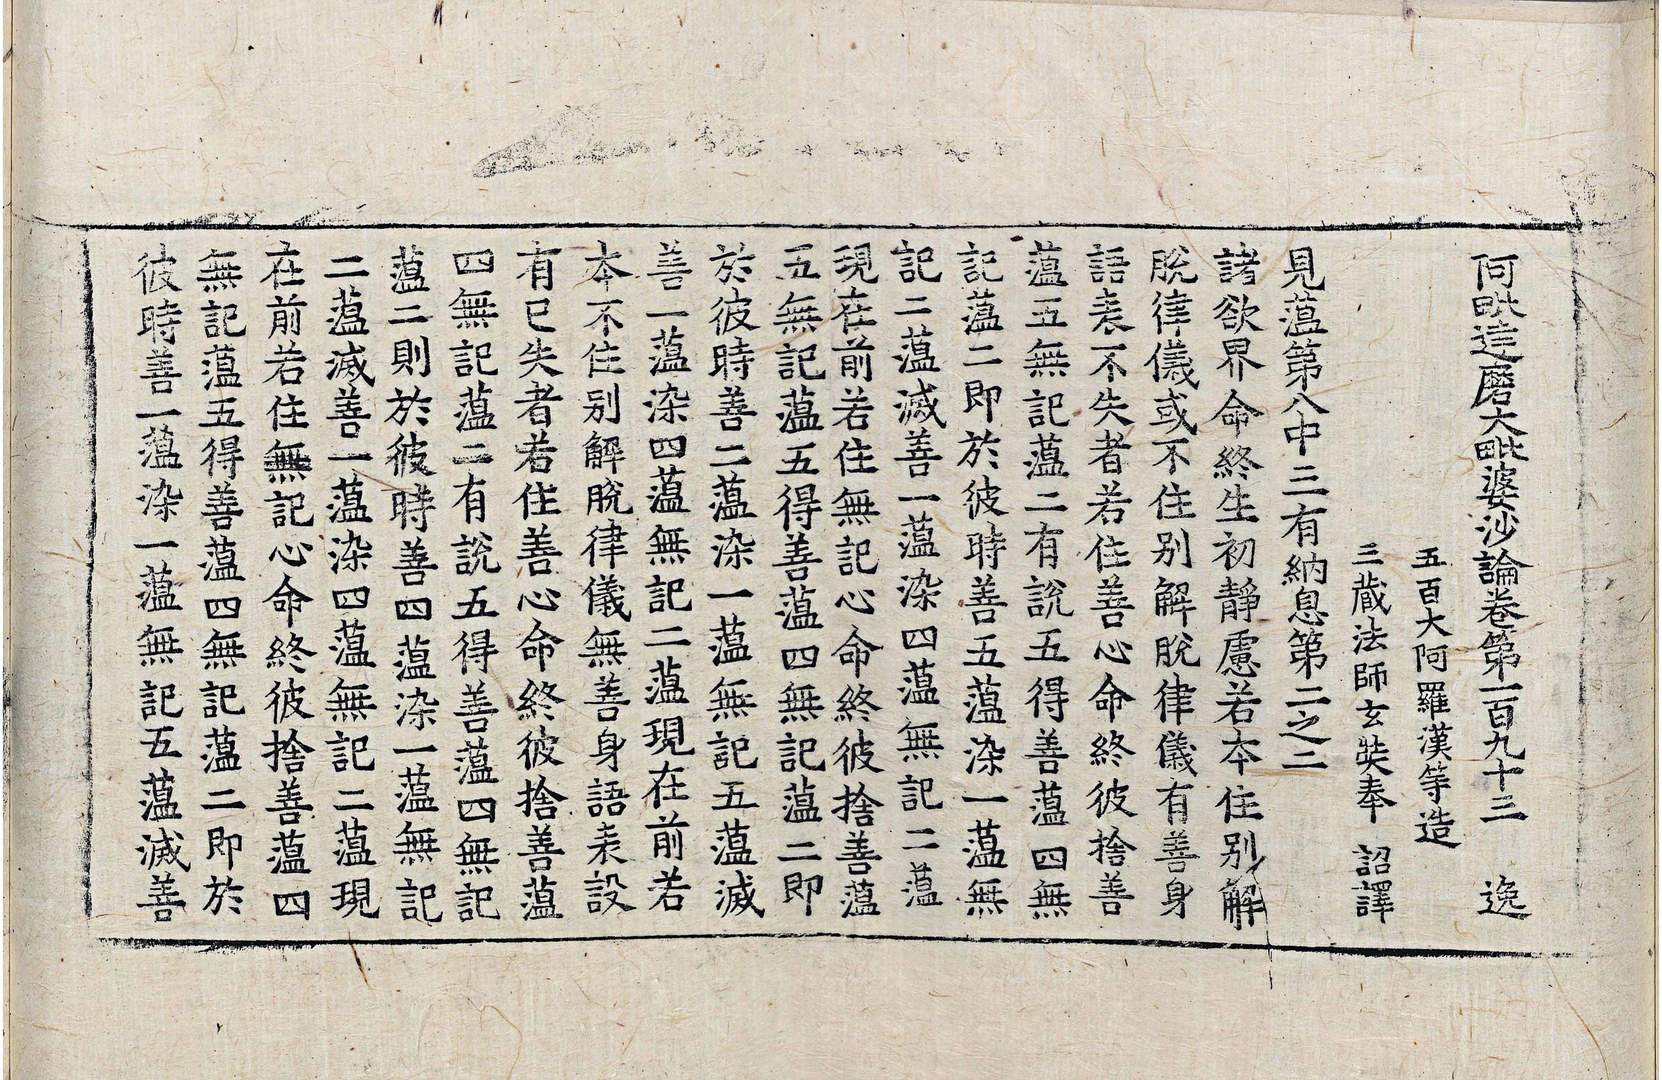 阿毗達磨大毗婆沙論卷第一百九十三　逸
五百大阿羅漢等造
三藏法師玄奘奉　詔譯
見蘊第八中三有納息第二之二
諸欲界命終生初靜慮若本住別解
脫律儀或不住別解脫律儀有善身
語表不失者若住善心命終彼捨善
蘊五無記蘊二有說五得善蘊四無
記蘊二即於彼時善五蘊染一蘊無
記二蘊滅善一蘊染四蘊無記二蘊
現在前若住無記心命終彼捨善蘊
五無記蘊五得善蘊四無記蘊二即
於彼時善二蘊染一蘊無記五蘊滅
善一蘊染四蘊無記二蘊現在前若
本不住別解脫律儀無善身語表設
有已失者若住善心命終彼捨善蘊
四無記蘊二有說五得善蘊四無記
蘊二則於彼時善四蘊染一蘊無記
二蘊滅善一蘊染四蘊無記二蘊現
在前若住無記心命終彼捨善蘊四
無記蘊五得善蘊四無記蘊二即於
彼時善一蘊染一蘊無記五蘊滅善